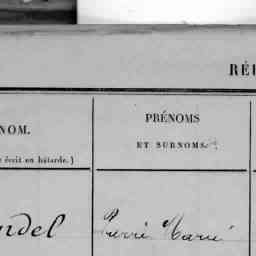 RÉ
PRÉNOMS
NOM.
ET SURNOMS.
écrit en bâtarde.)
ndel Pierre Marie